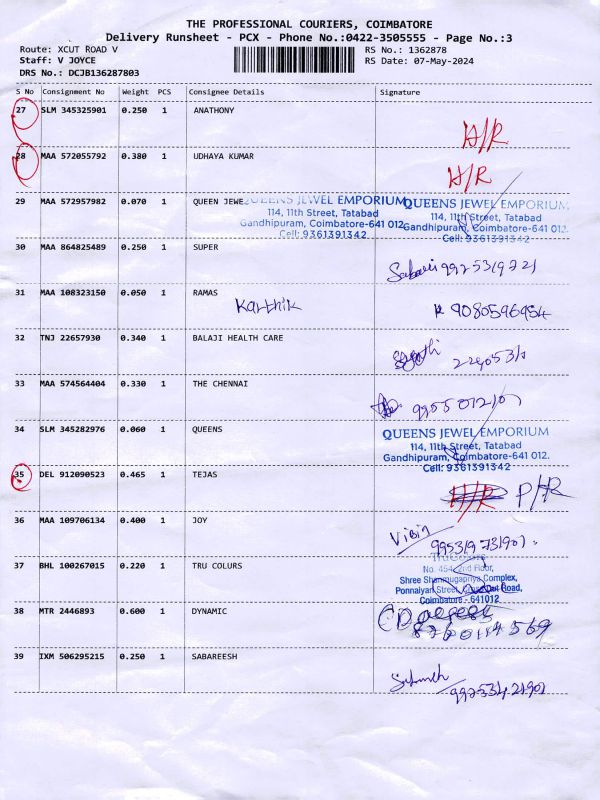 THE PROFESSIONAL COURIERS, COIMBATORE
Delivery Runsheet - PCX - Phone No.:0422-3505555 - Page No.:3
Route: XCUT ROAD V
Staff: V JOYCE
DRS No.: DCJB136287803
RS No.: 1362878
RS Date: 07-May-2024
S No Consignment No Weight PCS Consignee Details Signature
27 SLM 345325901 0.250 1 ANATHONY H/R
28 MAA 572055792 0.380 1 UDHAYA KUMAR H/R
29 MAA 572957982 0.070 1 QUEEN JEWE
QUEENS JEWEL EMPORIUM
114, 11th Street, Tatabad
Gandhipuram, Coimbatore-641 012
Cell: 9361391342
QUEENS JEWEL EMPORIUM
114, 11th Street, Tatabad
Gandhipuram, Coimbatore-641 012.
Cell: 9361391342
30 MAA 864825489 0.250 1 SUPER
31 MAA 108323150 0.050 1 RAMAS Karthik 9080596954
32 TNJ 22657930 0.340 1 BALAJI HEALTH CARE
33 MAA 574564404 0.330 1 THE CHENNAI
34 SLM 345282976 0.060 1 QUEENS
QUEENS JEWEL EMPORIUM
114, 11th Street, Tatabad
Gandhipuram, Coimbatore-641 012.
Cell: 9361391342
35 DEL 912090523 0.465 1 TEJAS H/R P/R
36 MAA 109706134 0.400 1 JOY Vibin
37 BHL 100267015 0.220 1 TRU COLURS
No. 454, 2nd Floor,
Shree Shanmugapriya Complex,
Ponnaiyan Street, Road,
Coimbatore - 641012
38 MTR 2446893 0.600 1 DYNAMIC
39 IXM 506295215 0.250 1 SABAREESH